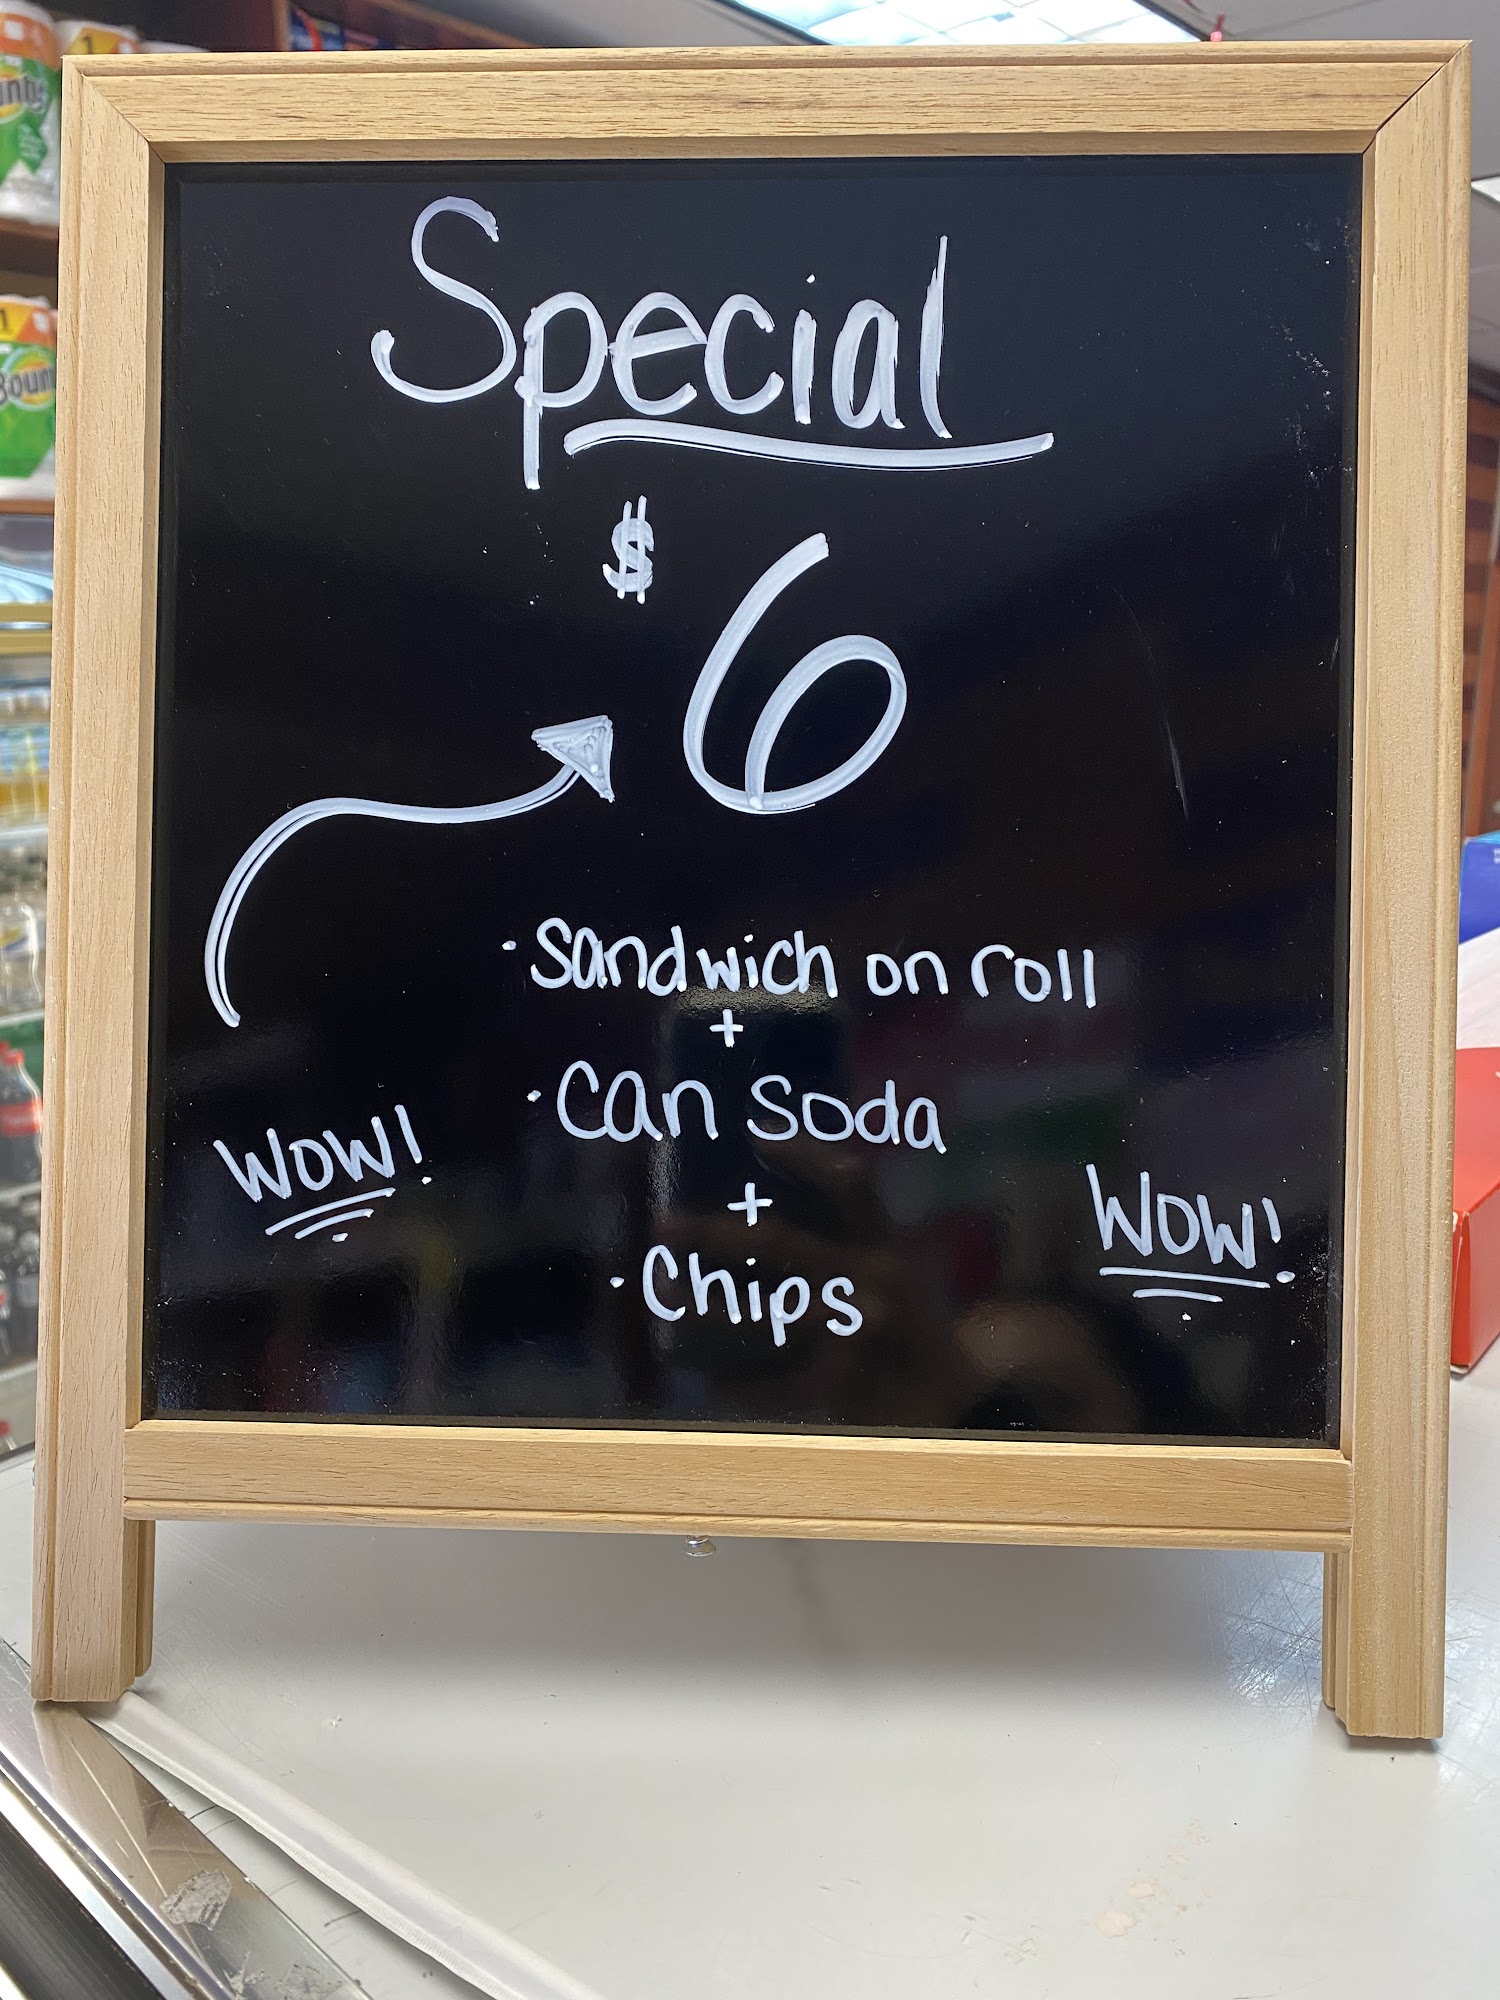 Special
$6
·Sandwich on roll
+
·Can Soda
+
·Chips
WOW!
WOW!
1
1
Boun